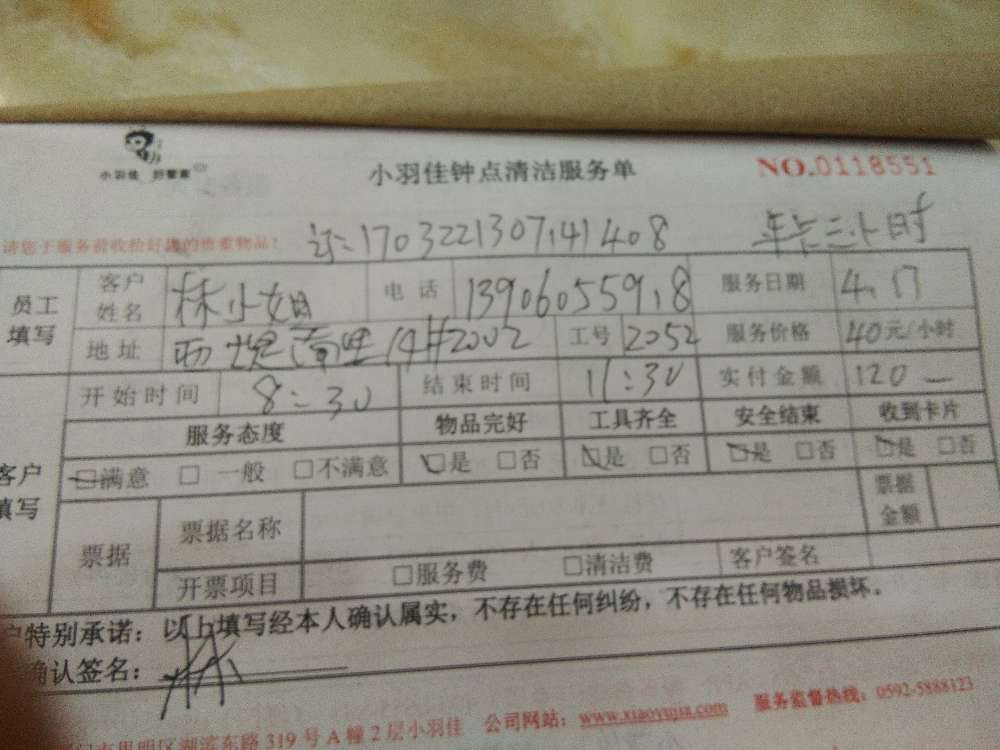 小羽佳 好管家
小羽佳钟点清洁服务单
NO.0118551
请您于服务前收拾好您的贵重物品!
订:1703221307141408
年卡三小时
员工填写 客户姓名 林小姐 电话 13906055918 服务日期 4.17
地址 南里14#2002 工号 2052 服务价格 40元/小时
开始时间 8:30 结束时间 11:30 实付金额 120一
客户填写 服务态度 物品完好 工具齐全 安全结束 收到卡片
☑满意 □ 一般 □不满意 ☑是 □否 ☑是 □否 ☑是 □否 ☑是 □否
票据 票据名称 票据金额
开票项目 □服务费 □清洁费 客户签名
户特别承诺:以上填写经本人确认属实,不存在任何纠纷,不存在任何物品损坏。
确认签名:林
门市思明区湖滨东路 319 号 A 幢 2 层小羽佳 公司网站:www.xiaoyujia.com 服务监督热线:0592-5888123